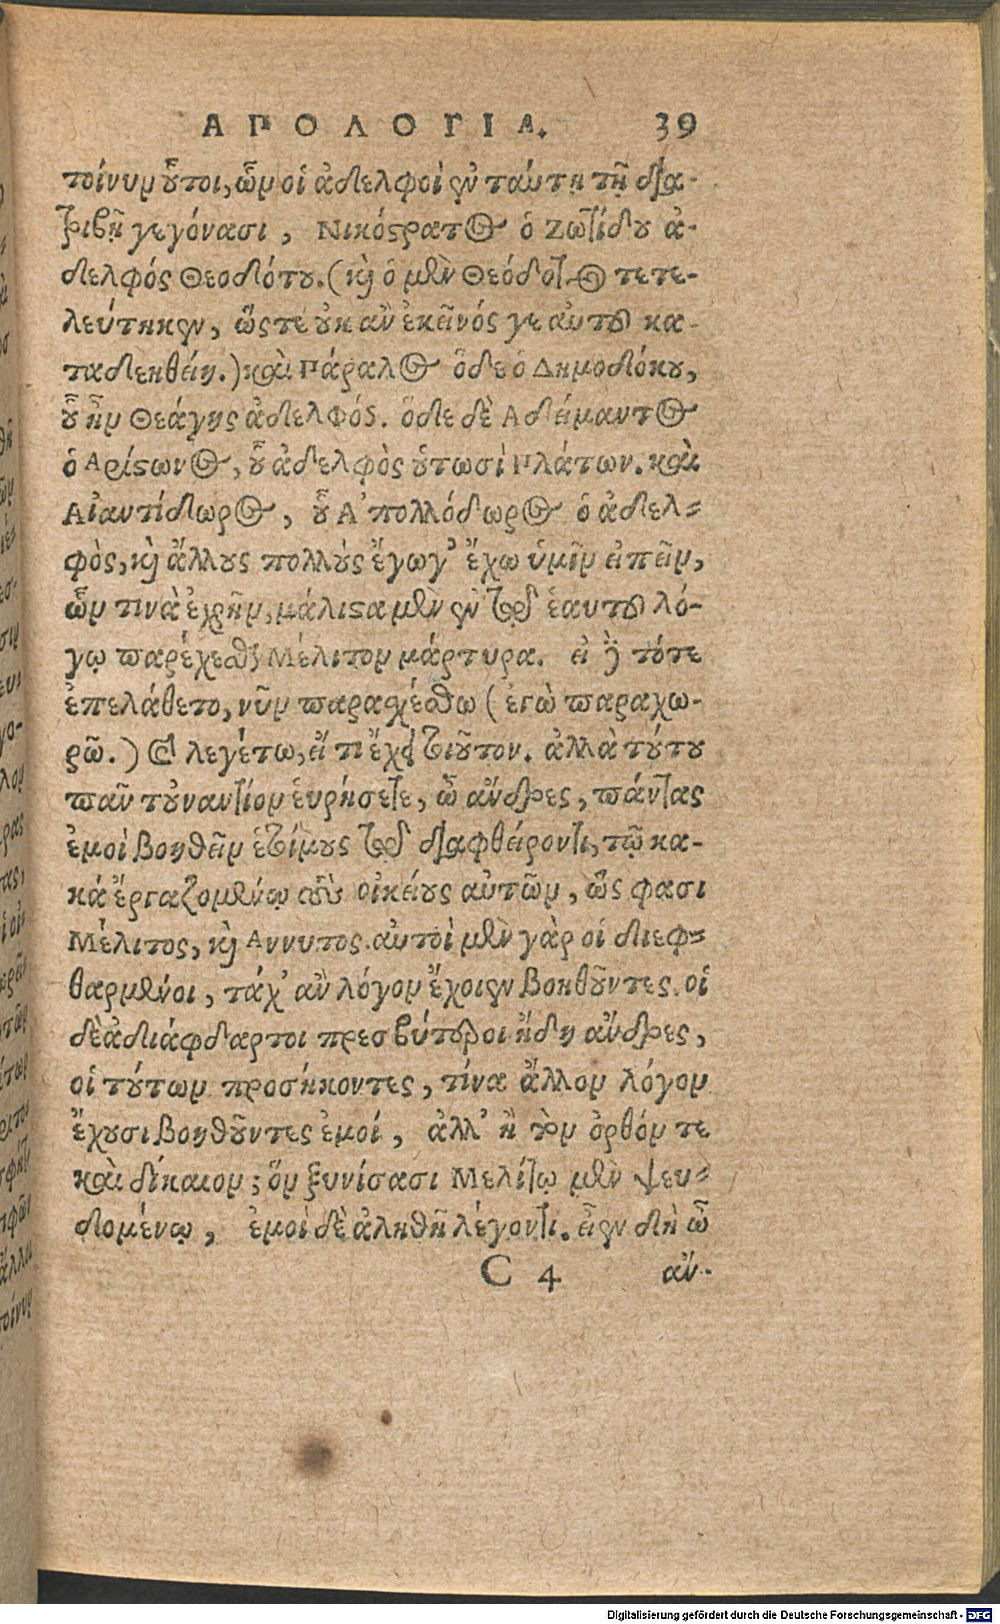 ΑΠΟΛΟΓΙΑ. 39
τοίνυν οὗτοι, ὧν οἱ ἀδελφοὶ ἐν ταύτῃ τῇ δια-
τριβῇ γεγόνασι, Νικόστρατος ὁ Ζωτίδου ἀ-
δελφός Θεοδότου. (καὶ ὁ μὲν Θεόδοτος τετε-
λεύτηκεν, ὥστε οὐκ ἂν ἐκεῖνός γε αὐτοῦ κα-
ταδεηθείη.) καὶ Πάραλος ὅδε ὁ Δημοδόκου,
οὗ ἦν Θεάγης ἀδελφός. ὅδε δὲ Αδείμαντος
ὁ Αρίστωνος, οὗ ἀδελφὸς οὑτωσὶ Πλάτων. καὶ
Αἰαντίδωρος, οὗ Ἀπολλόδωρος ὁ ἀδελ-
φὸς, καὶ ἄλλους πολλοὺς ἔγωγ' ἔχω ὑμῖν εἰπεῖν,
ὧν τινὰ ἐχρῆν, μάλιστα μὲν ἐν τῷ ἑαυτοῦ λό-
γῳ παρέχεσθαι Μέλιτον μάρτυρα. εἰ δὲ τότε
ἐπελάθετο, νῦν παρασχέσθω (ἐγὼ παραχω-
ρῶ.) καὶ λεγέτω, εἴ τι ἔχει τοιοῦτον. ἀλλὰ τούτου
πᾶν τοὐναντίον εὑρήσετε, ὦ ἄνδρες, πάντας
ἐμοὶ βοηθεῖν ἑτοίμους τῷ διαφθείροντι, τῷ κα-
κά ἐργαζομένῳ τοὺς οἰκείους αὐτῶν, ὥς φασι
Μέλιτος, καὶ Αννυτος. αὐτοὶ μὲν γὰρ οἱ διεφ-
θαρμένοι, τάχ' ἂν λόγον ἔχοιεν βοηθοῦντες. οἱ
δὲ ἀδιάφθαρτοι πρεσβύτεροι ἤδη ἄνδρες,
οἱ τούτων προσήκοντες, τίνα ἄλλον λόγον
ἔχουσι βοηθοῦντες ἐμοί, ἀλλ' ἢ τὸν ὀρθόν τε
καὶ δίκαιον; ὃν ξυνίσασι Μελίτῳ μὲν ψευ-
δομένῳ, ἐμοὶ δὲ ἀληθῆ λέγοντι. εἶεν δὴ ὦ
C 4 ἄν-
Digitalisierung gefördert durch die Deutsche Forschungsgemeinschaft - DFG